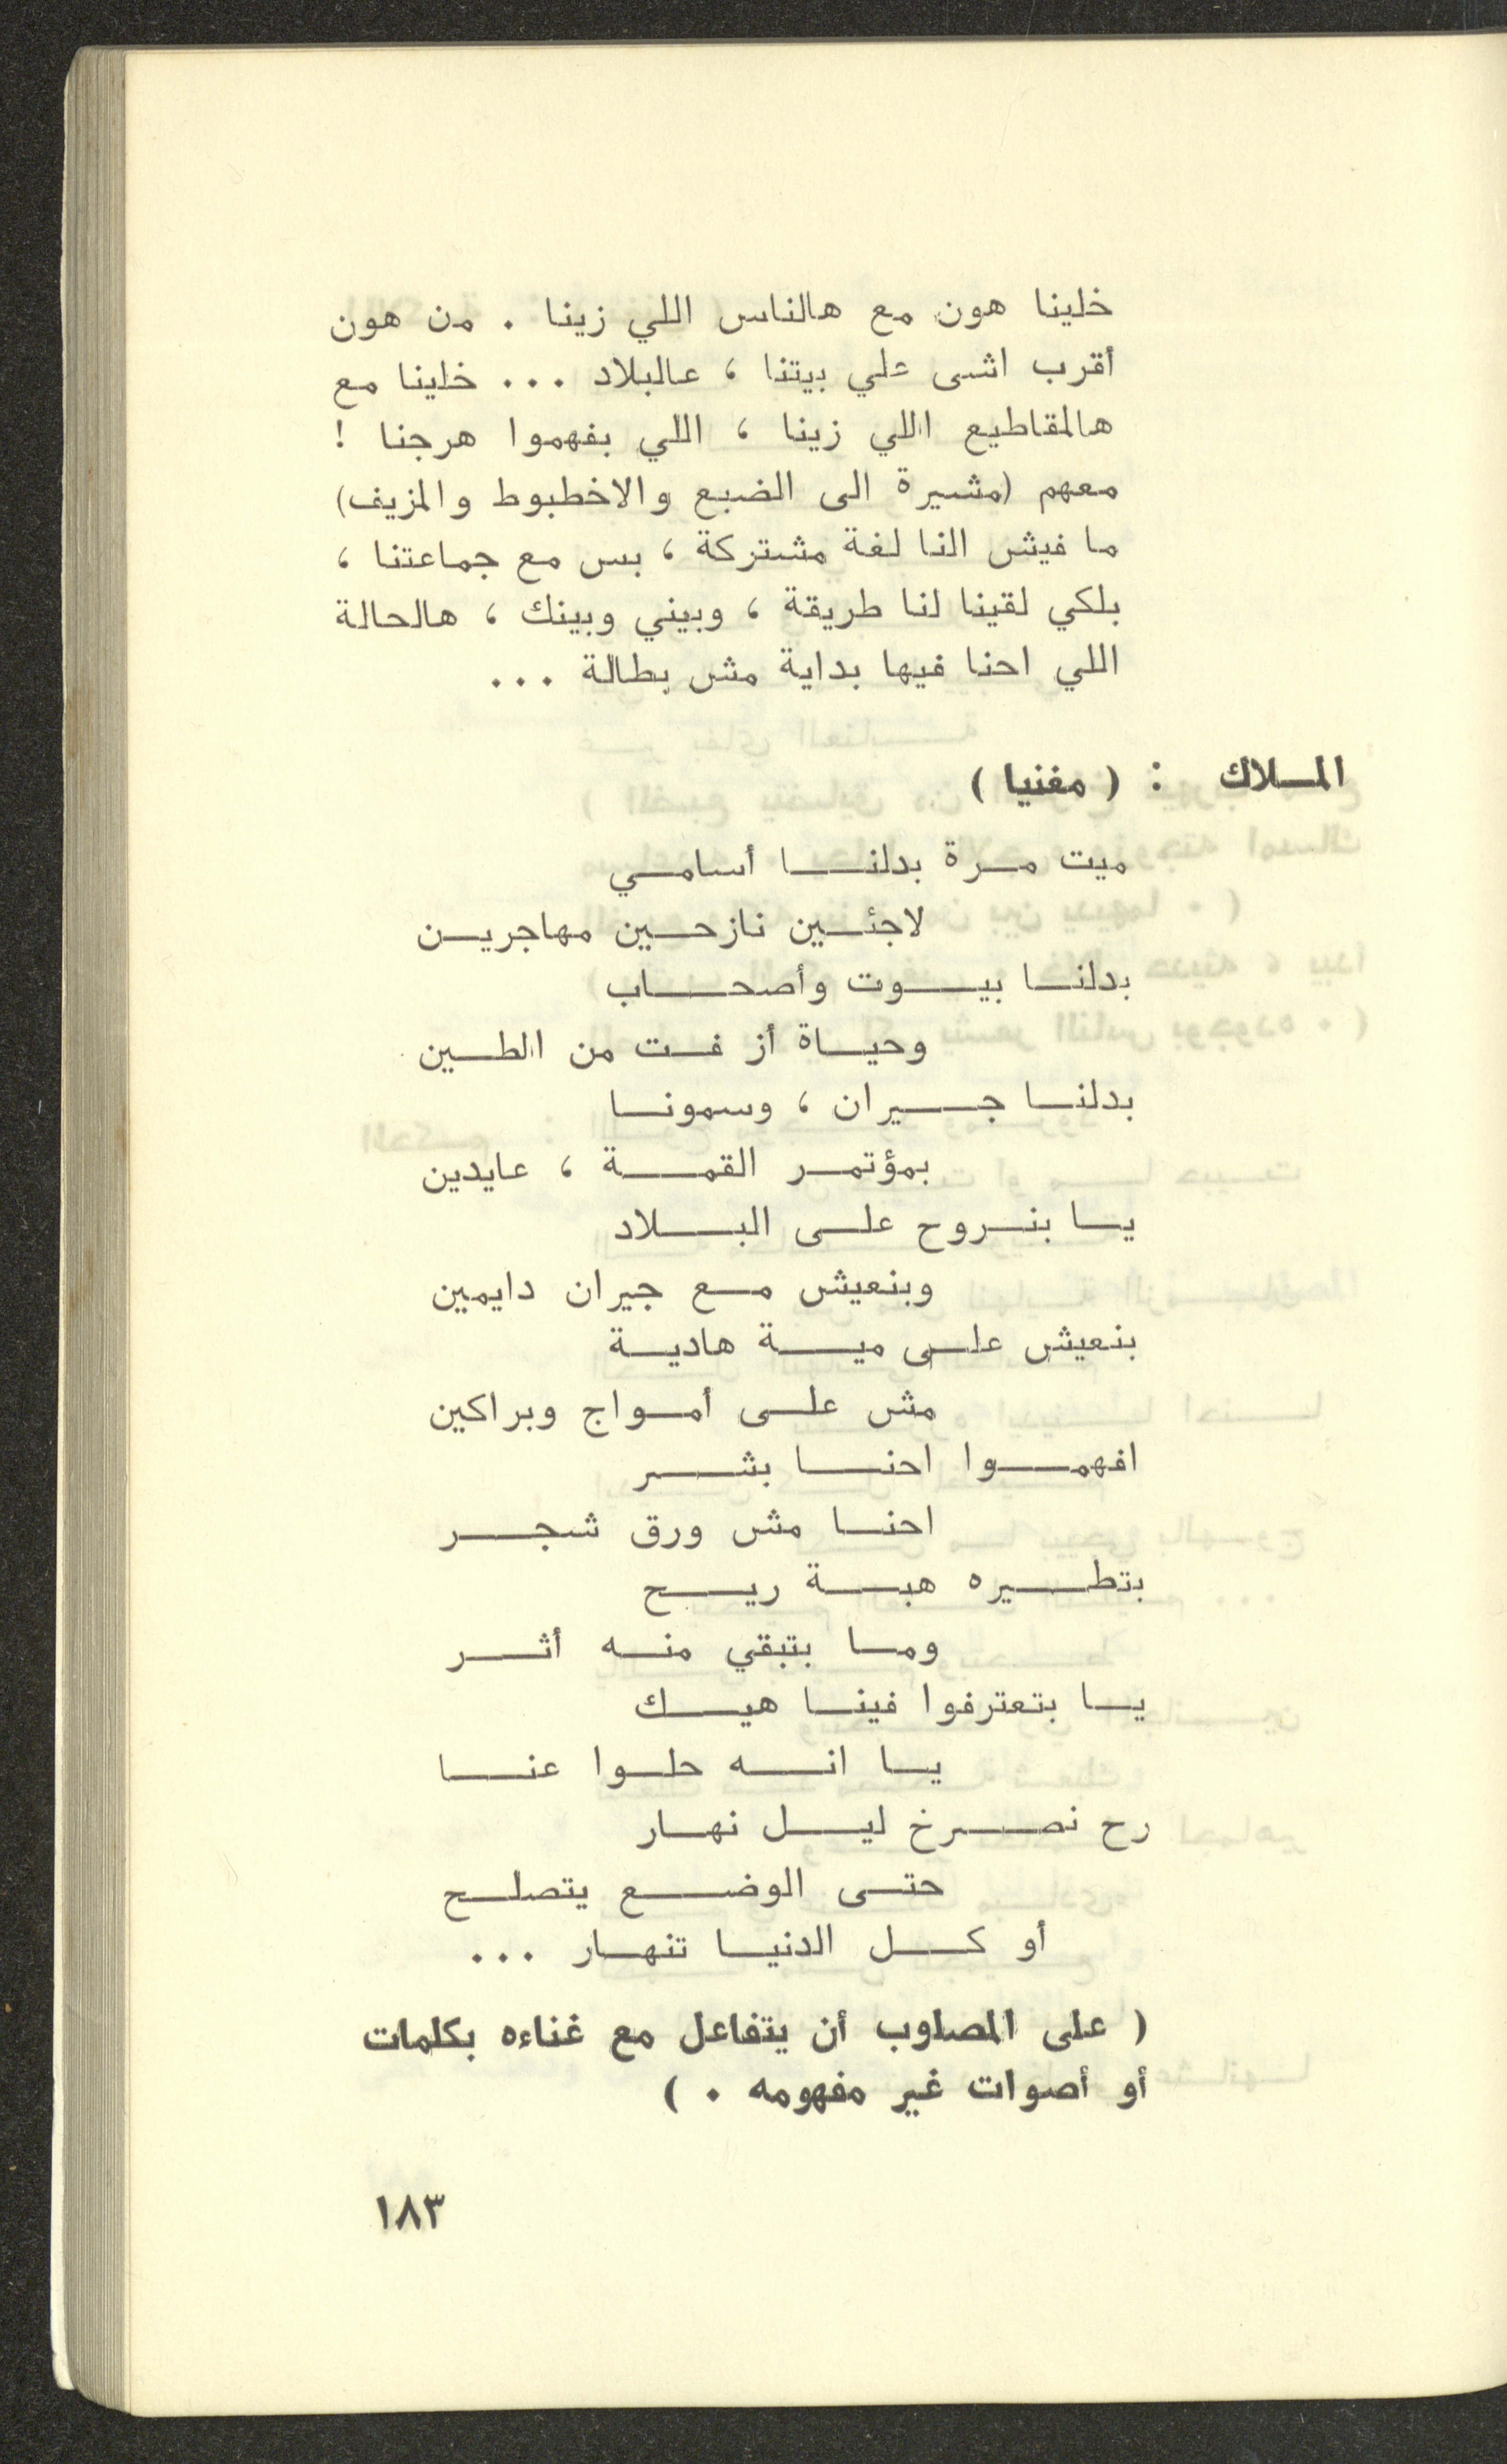 خلينا هون مع هالناس اللي زينا . من هون
أقرب اشى علي بيتنا ، عالبلاد ... خلينا مع
هالمقاطيع اللي زينا ، اللي بفهموا هرجنا !
معهم (مشيرة الى الضبع والاخطبوط والمزيف)
ما فيش النا لغة مشتركة ، بس مع جماعتنا ،
بلكي لقينا لنا طريقة ، وبيني وبينك ، هالحالة
اللي احنا فيها بداية مش بطالة ...
الملاك : ( مغنيا )
ميت مرة بدلنا أسامي
لاجئين نازحين مهاجرين
بدلنا بيوت وأصحاب
وحياة أزفت من الطين
بدلنا جيران ، وسمونا
بمؤتمر القمة ، عايدين
يا بنروح على البلاد
وبنعيش مع جيران دايمين
بنعيش على مية هادية
مش على أمواج وبراكين
افهموا احنا بشر
احنا مش ورق شجر
بتطيره هبة ريح
وما بتبقي منه أثر
يا بتعترفوا فينا هيك
يا انه حلوا عنا
رح نصرخ ليل نهار
حتى الوضع يتصلح
أو كل الدنيا تنهار ...
( على المصلوب أن يتفاعل مع غناءه بكلمات
أو أصوات غير مفهومه . )
١٨٣